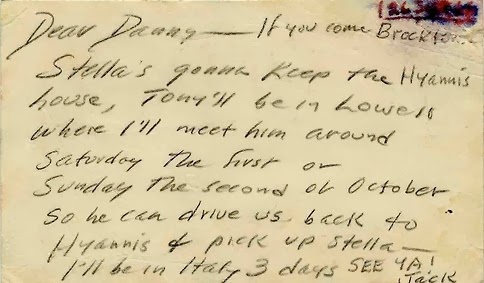 Dear Danny — If you come Brockton
Stella's gonna keep the Hyannis
house, Tony'll be in Lowell
where I'll meet him around
Saturday the first or
Sunday the second of October
so he can drive us back to
Hyannis & pick up Stella —
I'll be in Italy 3 days SEE YA!
Jack